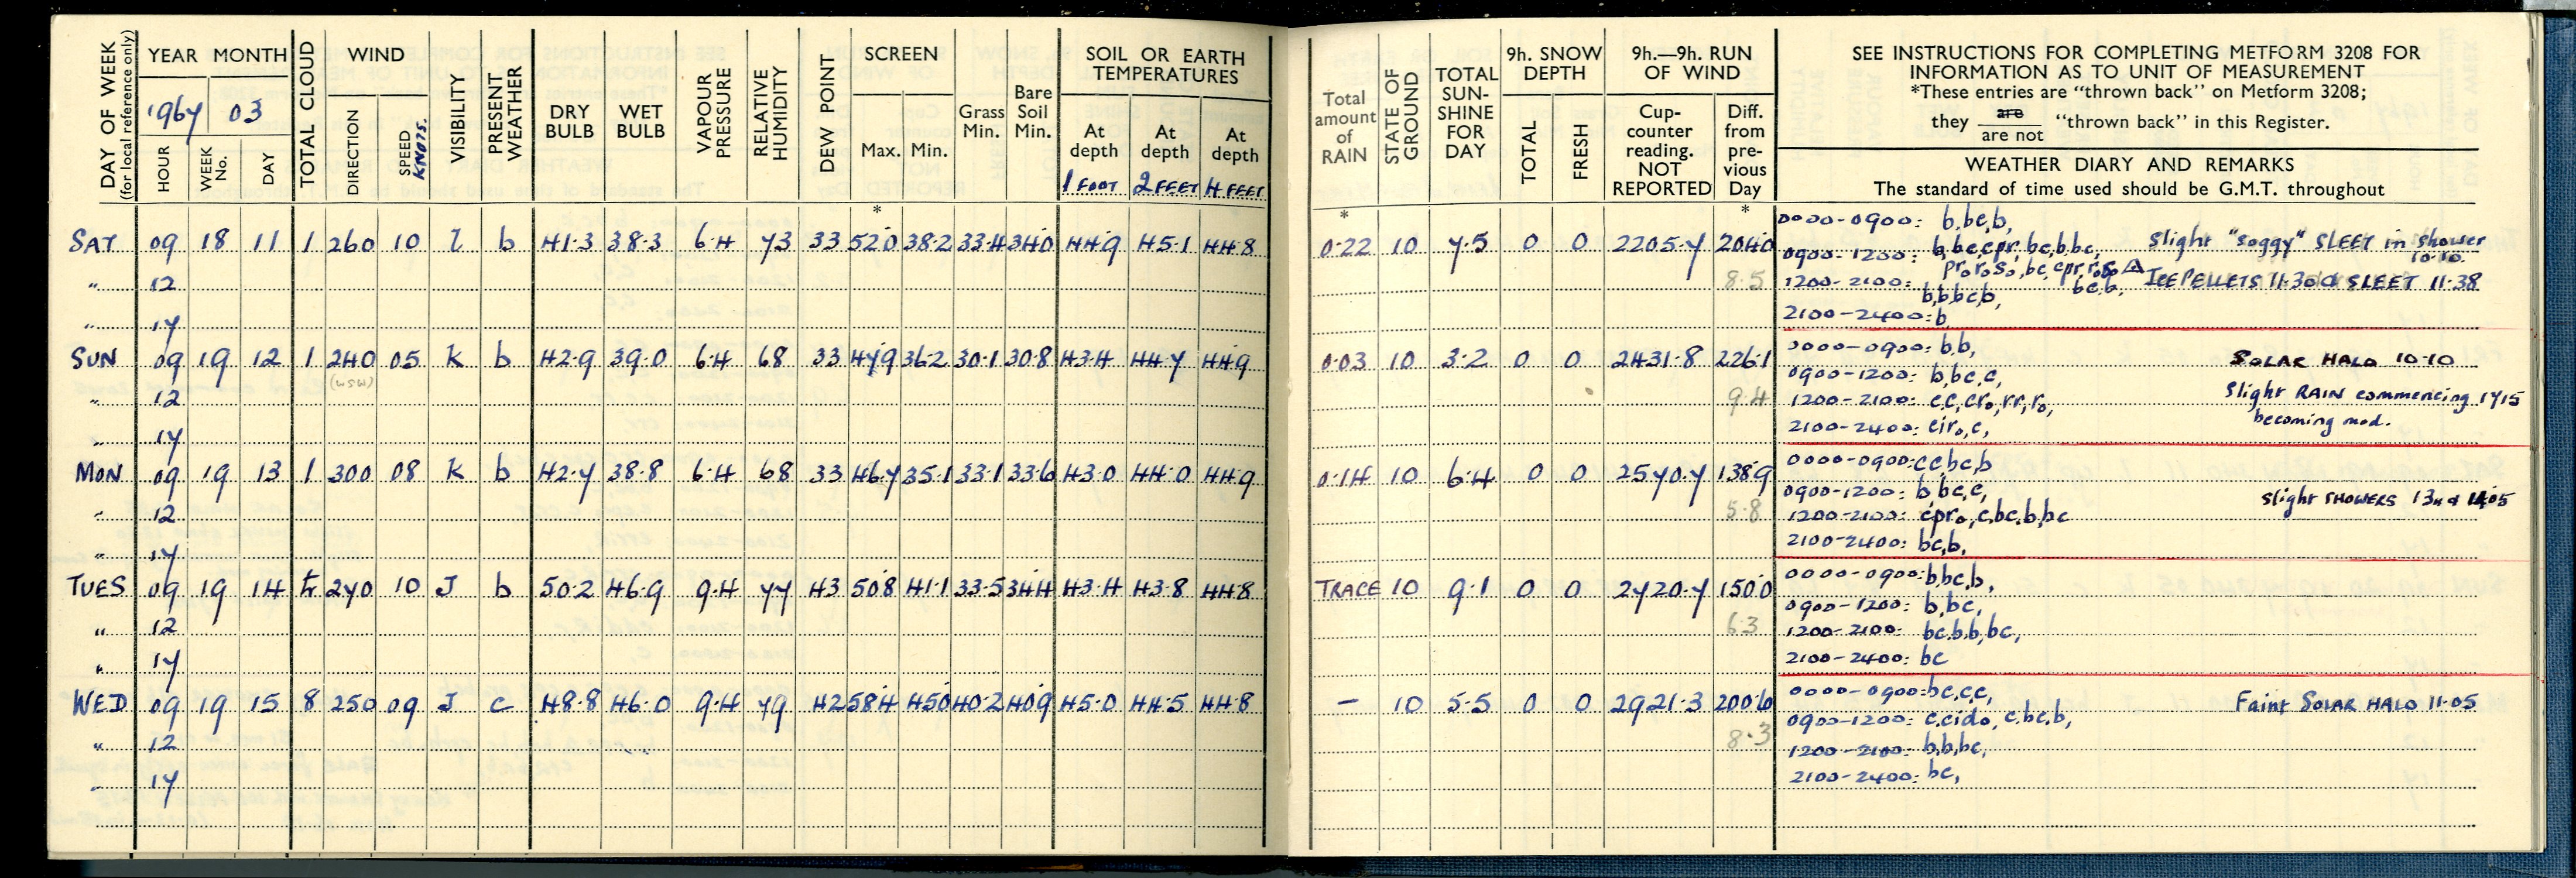 DAY OF WEEK (for local reference only)
YEAR MONTH
1967 03
HOUR WEEK No. DAY
TOTAL CLOUD
WIND
DIRECTION SPEED KNOTS.
VISIBILITY
PRESENT WEATHER
DRY BULB WET BULB
VAPOUR PRESSURE
RELATIVE HUMIDITY
DEW POINT
SCREEN
Max. Min.
Grass Min.
Bare Soil Min.
SOIL OR EARTH TEMPERATURES
At depth At depth At depth
1 FOOT 2 FEET 4 FEET
Total amount of RAIN
STATE OF GROUND
TOTAL SUN-SHINE FOR DAY
9h. SNOW DEPTH
TOTAL FRESH
9h.—9h. RUN OF WIND
Cup-counter reading. NOT REPORTED
Diff. from pre-vious Day
SEE INSTRUCTIONS FOR COMPLETING METFORM 3208 FOR
INFORMATION AS TO UNIT OF MEASUREMENT
*These entries are "thrown back" on Metform 3208;
they are / are not "thrown back" in this Register.
WEATHER DIARY AND REMARKS
The standard of time used should be G.M.T. throughout
* * *
SAT 09 18 11 1 260 10 l b 41.3 38.3 6.4 73 33 52.0 38.2 33.4 34.0 44.9 45.1 44.8 0.22 10 7.5 0 0 2205.7 204.0
0000-0900: b,bc,b,
0900-1200: b,bc,cpr,bc,b,bc, Slight "soggy" SLEET in shower 10.10.
" 12 8.5
1200-2100: bc,b, ICE PELLETS 11.30 & SLEET 11.38
b,b,bc,b,
" 17
2100-2400: b
SUN 09 19 12 1 240 05 k b 42.9 39.0 6.4 68 33 47.9 36.2 30.1 30.8 43.4 44.7 44.9 0.03 10 3.2 0 0 2431.8 226.1
(WSW)
0000-0900: b,b,
SOLAR HALO 10.10
0900-1200: b,bc,c,
" 12 9.4
1200-2100: c,c,cr₀,rr,r₀, Slight RAIN commencing 1715
becoming mod.
" 17
2100-2400: cir₀,c,
MON 09 19 13 1 300 08 k b 42.7 38.8 6.4 68 33 46.7 35.1 33.1 33.6 43.0 44.0 44.9 0.14 10 6.4 0 0 2570.7 138.9
0000-0900: c,c,bc,b
0900-1200: b,bc,c, slight SHOWERS
" 12 5.8
1200-2100: cpr₀,c,bc,b,bc
" 17
2100-2400: bc,b,
TUES 09 19 14 270 10 J b 50.2 46.9 9.4 77 43 50.8 41.1 33.5 34.4 43.4 43.8 44.8 TRACE 10 9.1 0 0 2720.7 150.0
0000-0900: b,bc,b,
0900-1200: b,bc,
" 12 6.3
1200-2100: bc,b,b,bc,
" 17
2100-2400: bc
WED 09 19 15 8 250 09 J c 48.8 46.0 9.4 79 42 58.4 45.0 40.2 40.9 45.0 44.5 44.8 — 10 5.5 0 0 2921.3 200.6
0000-0900: bc,c,c, Faint SOLAR HALO 11.05
0900-1200: c,cid₀,c,bc,b,
" 12 8.3
1200-2100: b,b,bc,
" 17
2100-2400: bc,